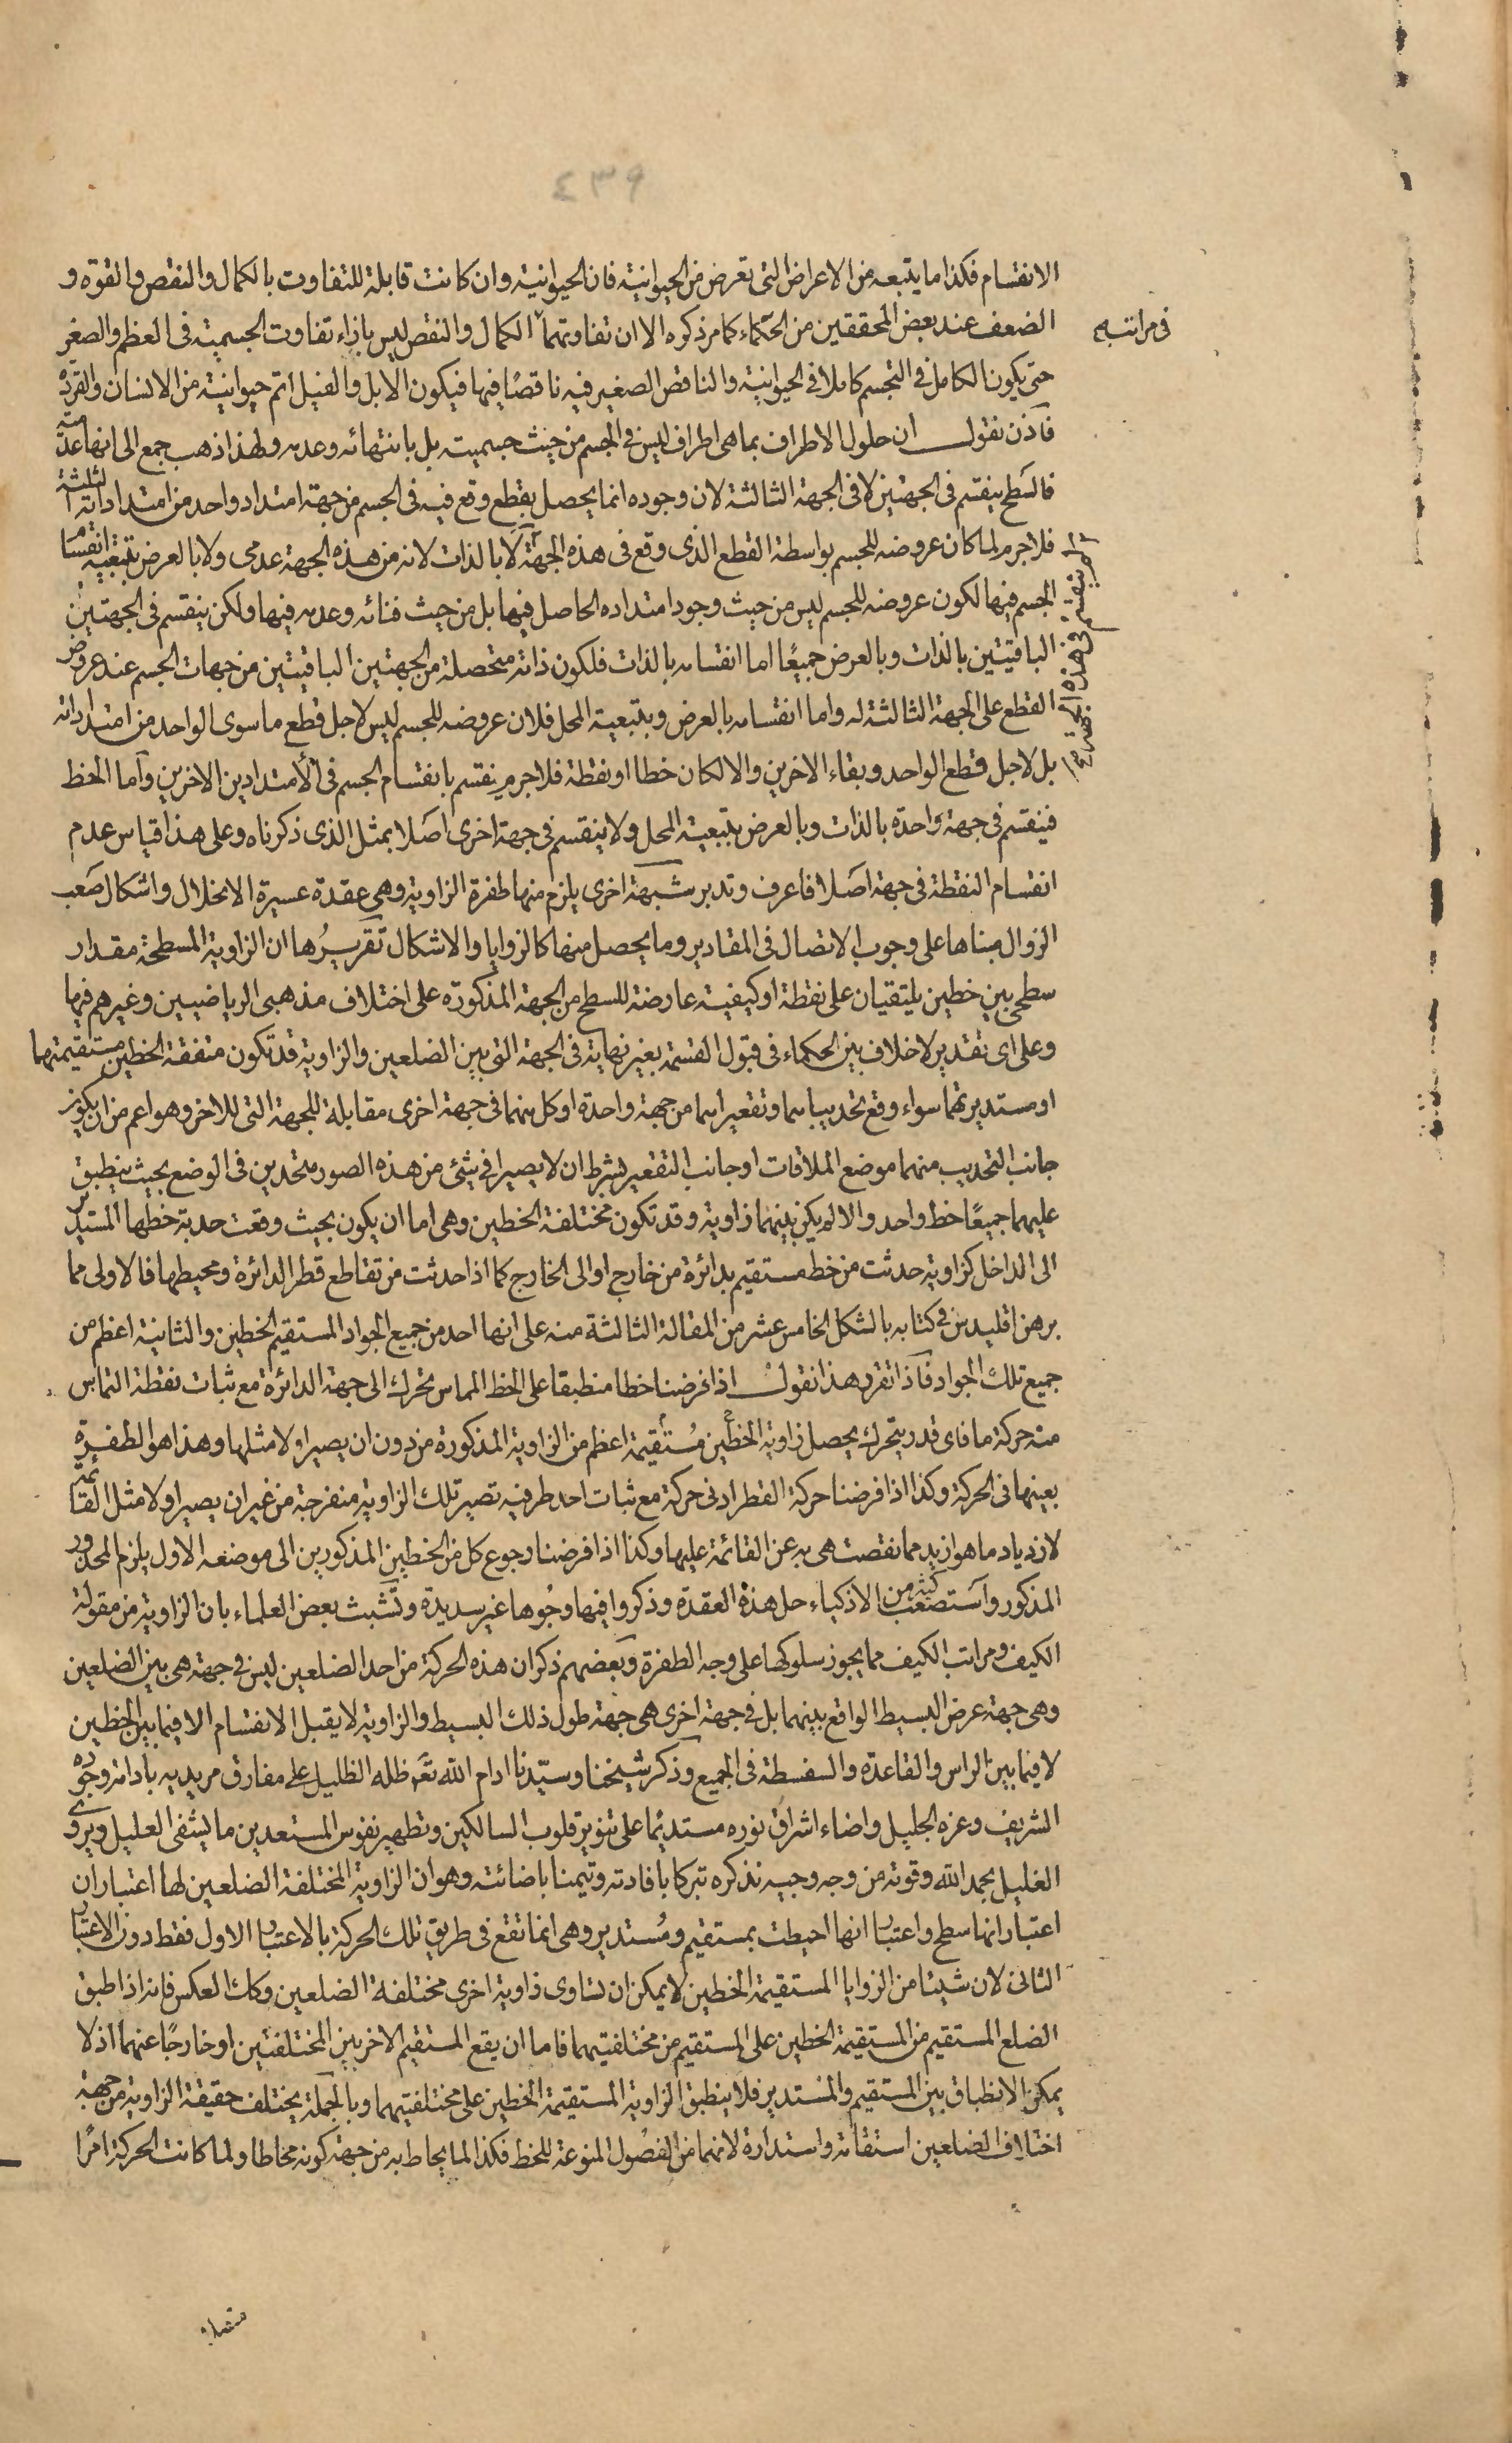 ٤٣٩
الانقسام فكذا ما يتبعه من الاعراض التى تعرض من الحيوانية فان الحيوانية وان كانت قابلة للتفاوت بالكمال والنقص والقوة و
الضعف عند بعض المحققين من الحكماء كما مر ذكره الا ان تفاوتهما الكمال والنقص ليس بازاء تفاوت الجسمية فى العظم والصغر
فى مراتبه
حتى يكون الكامل فى التجسم كاملا فى الحيوانية والناقص الصغير فيه ناقصًا فيها فيكون الابل والفيل اتم حيوانية من الانسان والقردة
فاذن نقول ان حلول الاطراف بما هى اطراف ليس فى الجسم من حيث جسميته بل بانتهائه وعدمه ولهذا ذهب جمع الى انها عدمية
فالسطح ينقسم فى الجهتين لا فى الجهة الثالثة لان وجوده انما يحصل بقطع وقع فيه فى الجسم من جهة امتداد واحد من امتداداته الثلثة
فلا جرم لما كان عروضه للجسم بواسطة القطع الذى وقع فى هذه الجهة لا بالذات لانه من هذه الجهة عدمى ولا بالعرض بتبعية انقسام
لم ينقسم فى هذه الجهة
الجسم فيها لكون عروضه للجسم ليس من حيث وجود امتداده الحاصل فيها بل من حيث فنائه وعدمه فيها ولكن ينقسم فى الجهتين
الباقيتين بالذات وبالعرض جميعًا اما انقسامه بالذات فلكون ذاته متحصلة من الجهتين الباقيتين من جهات الجسم عند عروض
القطع على الجهة الثالثة له واما انقسامه بالعرض وبتبعية المحل فلان عروضه للجسم ليس لاجل قطع ما سوى الواحد من امتداداته
بل لاجل قطع الواحد وبقاء الاخرين والا لكان خطا او نقطة فلا جرم ينقسم بانقسام الجسم فى الأمتدادين الاخرين وآما الخط
فينقسم فى جهة واحدة بالذات وبالعرض بتبعية المحل ولا ينقسم فى جهة اخرى اصلا بمثل الذى ذكرناه وعلى هذا قياس عدم
انقسام النقطة فى جهة اصلا فاعرف وتدبر شبهة اخرى يلزم منها طفرة الزاوية وهى عقدة عسيرة الانحلال واشكال صعب
الزوال مبناها على وجوب الاتصال فى المقادير وما يحصل منها كالزوايا والاشكال تقريرُها ان الزاوية المسطحة مقدار
سطحى بين خطين يلتقيان على نقطة او كيفية عارضة للسطح من الجهة المذكورة على اختلاف مذهبى الرياضيين وغيرهم فيها
وعلى اى تقدير لا خلاف بين الحكماء فى قبول القسمة بغير نهاية فى الجهة التى بين الضلعين والزاوية قد تكون متفقة الخطين مستقيمتهما
او مستديرتهما سواء وقع تحديباهما وتقعيراهما من جهة واحدة او كل منهما فى جهة اخرى مقابلة للجهة التى للاخر وهو اعم من ان يكون
جانب التحديب منهما موضع الملاقات او جانب التقعير بشرط ان لا يصيرا فى شئ من هذه الصور متحدين فى الوضع بحيث ينطبق
عليهما جميعًا خط واحد والا لم يكن بينهما زاوية وقد تكون مختلفة الخطين وهى اما ان يكون بحيث وقعت حدبة خطها المستدير
الى الداخل كزاوية حدثت من خط مستقيم بدائرة من خارج او الى الخارج كما اذا حدثت من تقاطع قطر الدائرة ومحيطها فالاولى مما
برهن اقليدس فى كتابه بالشكل الخامس عشر من المقالة الثالثة منه على انها احد من جميع الحواد المستقيم الخطين والثانية اعظم من
جميع تلك الحواد فآذا تقرر هذا نقول اذا فرضنا خطا منطبقا على الخط المماس يتحرك الى جهة الدائرة مع ثبات نقطة التماس
منه حركة ما فاى قدر يتحرك يحصل زاوية الخطين مُستقيمة اعظم من الزاوية المذكورة من دون ان يصير اولا مثلها وهذا هو الطفرة
بعينها فى الحركة وكذا اذا فرضنا حركة القطر ادنى حركة مع ثبات احد طرفيه تصير تلك الزاوية منفرجة من غير ان يصير اولا مثل القائمة
لازدياد ما هو ازيد مما نقصت هى به عن القائمة عليها وكذا اذا فرضنا رجوع كل من الخطين المذكورين الى موضعه الاول يلزم المحذور
المذكور وآستصعب كثير من الاذكياء حل هذه العقدة وذكروا فيها وجُوها غير سديدة وتشبث بعض العلماء بان الزاوية من مقولة
الكيف ومراتب الكيف مما يجوز سلوكها على وجه الطفرة وبعضهم ذكر ان هذه الحركة من احد الضلعين ليس فى جهة هى بين الضلعين
وهى جهة عرض البسيط الواقع بينهما بل فى جهة اخرى هى جهة طول ذلك البسيط والزاوية لا يقبل الانقسام الا فيما بين الخطين
لا فيما بين الراس والقاعدة والسفسطة فى الجميع وذكر شيخنا وسيّدنا ادام الله تعَ ظله الظليل على مفارق مريديه بادامة وجُوده
الشريف وعزه الجليل واضاء اشراق نوره مستديمًا على تنوير قلوب السالكين وتطهير نفوس المستعدين ما يشفى العليل ويروى
الغليل بحمد الله وقوته من وجه وجيه نذكره تبركا بافادته وتيمنا باضائته وهو ان الزاوية المختلفة الضلعين لها اعتباران
اعتبار انها سطح واعتبار انها احيطت بمستقيم ومُستدير وهى انما تقع فى طريق تلك الحركة بالاعتبار الاول فقط دون الاعتبار
الثانى لان شيئا من الزوايا المستقيمة الخطين لا يمكن ان تساوى زاوية اخرى مختلفة الضلعين وكك العكس فانه اذا طبق
الضلع المستقيم من المستقيمة الخطين على المستقيم من مختلفتيهما فاما ان يقع المستقيم الاخر بين المختلفتين او خارجًا عنهما اذ لا
يمكن الانطباق بين المستقيم والمستدير فلا ينطبق الزاوية المستقيمة الخطين على مختلفتيهما وبالجملة يختلف حقيقة الزاوية من جهة
اختلاف الضلعين استقامة واستدارة لانهما من الفصُول المنوعة للخط فكذا لما يحاط به من جهة كونه محاطا ولما كانت الحركة امرًا